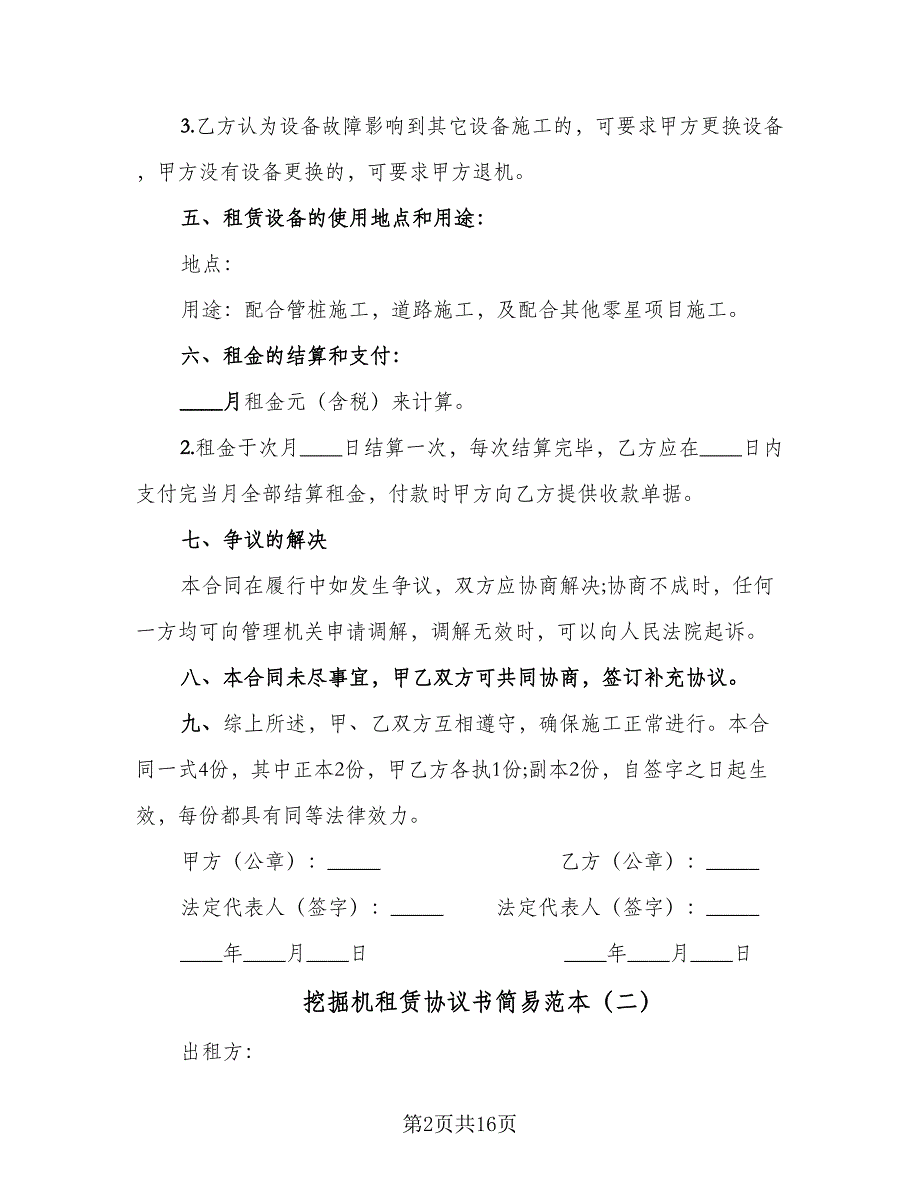 3.乙方认为设备故障影响到其它设备施工的，可要求甲方更换设备
，甲方没有设备更换的，可要求甲方退机。
五、租赁设备的使用地点和用途：
地点：
用途：配合管桩施工，道路施工，及配合其他零星项目施工。
六、租金的结算和支付：
____月租金元（含税）来计算。
2.租金于次月____日结算一次，每次结算完毕，乙方应在____日内
支付完当月全部结算租金，付款时甲方向乙方提供收款单据。
七、争议的解决
本合同在履行中如发生争议，双方应协商解决;协商不成时，任何
一方均可向管理机关申请调解，调解无效时，可以向人民法院起诉。
八、本合同未尽事宜，甲乙双方可共同协商，签订补充协议。
九、综上所述，甲、乙双方互相遵守，确保施工正常进行。本合
同一式4份，其中正本2份，甲乙方各执1份;副本2份，自签字之日起生
效，每份都具有同等法律效力。
甲方（公章）：_____ 乙方（公章）：_____
法定代表人（签字）：_____ 法定代表人（签字）：_____
____年____月____日 ____年____月____日
挖掘机租赁协议书简易范本（二）
出租方：
第2页共16页